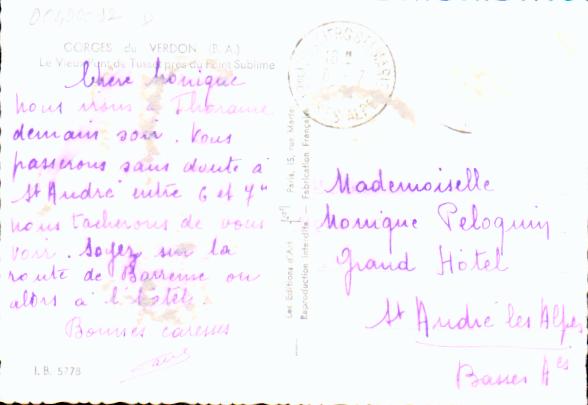 GORGES du VERDON (B. A.)
Le Vieux Pont de Tusset près du Point Sublime
Chere Monique
Nous irons à Thorame
demain soir. Nous
passerons sans doute à
St André entre 6 et 7h
nous tacherons de vous
voir. Soyez sur la
route de Barreme ou
alors à l'hôtel.
Bonnes caresses
I. B. 5778
Les Editions d'Art Paris, 15, rue Martel
Reproduction Interdite - Fabrication Française
Mademoiselle
Monique Peloquin
Grand Hôtel
St André les Alpes
Basses Aes